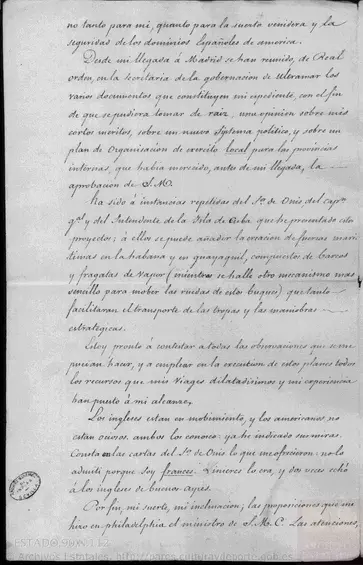 no tanto para mi, quanto para la suerte venidera y la
seguridad de los dominios Españoles de america.
Desde mi llegada á Madrid se han reunido, de Real
orden, en la Secretaria de la gobernacion de Ultramar los
varios documentos que constituyen mi expediente, con el fin
de que se pudiera tomar de raiz, una opinion sobre mis
cortos meritos, sobre un nuevo systema politico, y sobre un
plan de organisacion de exercito local para las provincias
internas, que habia merecido, antes de mi llegada, la
aprobacion de S.M.
Ha sido á instancias repetidas del Sr. de Onis del Capn.
gral. y del Intendente de la Isla de Cuba que he presentado estos
proyectos; á ellos se puede añadir la creacion de fuerzas mari-
timas en la habana y en guayaquil, compuestas de barcos
y fragatas de vapor (mientras se halle otro mecanismo mas
sencillo para mober las ruedas de estos buques) que tanto
facilitaran el transporte de las tropas y las maniobras
estrategicas.
Estoy pronto á contestar a todas las observaciones que se me
puedan hacer, y a emplear en la execution de estos planes todos
los recursos que mis viages dilatadisimos y mi experiencia
han puesto á mi alcance.
Los ingleses estan en mobimiento, y los americanos, no
estan ociosos. ambos los conoces: ya he indicado sus miras.
Consta en las cartas del Sr. de Onis lo que me ofrecieron: no lo
admiti porque soy frances. Liniers lo era, y dos veces echó
á los ingleses de buenos ayres.
Por fin, mi suerte, mi inclinacion; las proposiciones que me
hizo en philadelphia el ministro de S. M. C. Las atenciones,
ESTADO,90,N.112
Archivos Estatales,